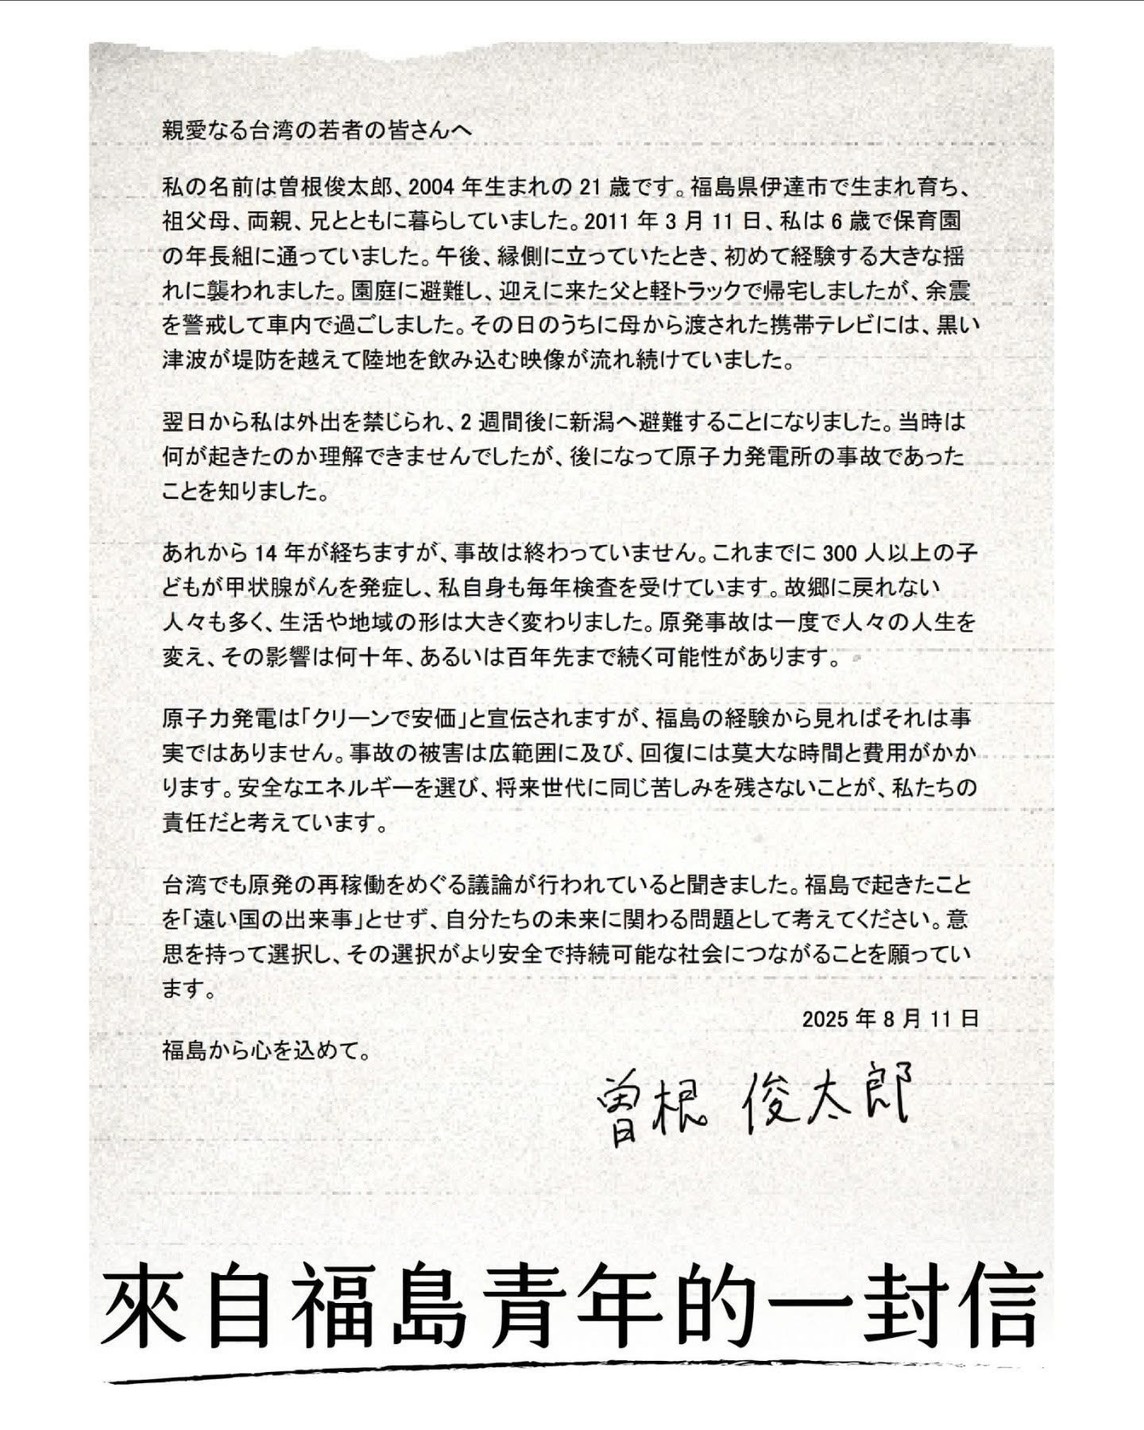 親愛なる台湾の若者の皆さんへ
私の名前は曽根俊太郎、2004 年生まれの 21 歳です。福島県伊達市で生まれ育ち、
祖父母、両親、兄とともに暮らしていました。2011 年 3 月 11 日、私は 6 歳で保育園
の年長組に通っていました。午後、縁側に立っていたとき、初めて経験する大きな揺
れに襲われました。園庭に避難し、迎えに来た父と軽トラックで帰宅しましたが、余震
を警戒して車内で過ごしました。その日のうちに母から渡された携帯テレビには、黒い
津波が堤防を越えて陸地を飲み込む映像が流れ続けていました。
翌日から私は外出を禁じられ、2 週間後に新潟へ避難することになりました。当時は
何が起きたのか理解できませんでしたが、後になって原子力発電所の事故であった
ことを知りました。
あれから 14 年が経ちますが、事故は終わっていません。これまでに 300 人以上の子
どもが甲状腺がんを発症し、私自身も毎年検査を受けています。故郷に戻れない
人々も多く、生活や地域の形は大きく変わりました。原発事故は一度で人々の人生を
変え、その影響は何十年、あるいは百年先まで続く可能性があります。
原子力発電は「クリーンで安価」と宣伝されますが、福島の経験から見ればそれは事
実ではありません。事故の被害は広範囲に及び、回復には莫大な時間と費用がかか
ります。安全なエネルギーを選び、将来世代に同じ苦しみを残さないことが、私たちの
責任だと考えています。
台湾でも原発の再稼働をめぐる議論が行われていると聞きました。福島で起きたこと
を「遠い国の出来事」とせず、自分たちの未来に関わる問題として考えてください。意
思を持って選択し、その選択がより安全で持続可能な社会につながることを願ってい
ます。
2025 年 8 月 11 日
福島から心を込めて。
曽根 俊太郎
來自福島青年的一封信